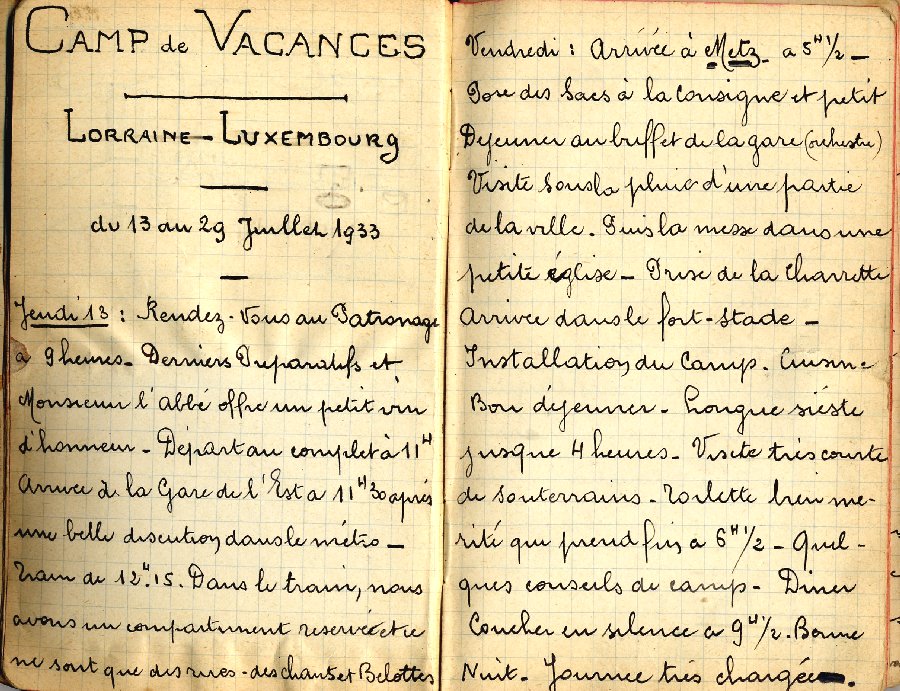 CAMP de VACANCES
LORRAINE - LUXEMBOURG
du 13 au 29 Juillet 1933
Jeudi 13 : Rendez-Vous au Patronage
a 9 heures - Derniers Préparatifs et
Monsieur l'abbé offre un petit vin
d'honneur - Départ au complet à 11H
Arrivée à la Gare de l'Est a 11H30 après
une belle discution dans le métro -
Train de 12H.15. Dans le train, nous
avons un compartiment reservée et ce
ne sont que des rires - des chants et Belottes
Vendredi : Arrivée à Metz - a 5H1/2 -
Pose des Sacs à la Consigne et petit
Dejeuner au buffet de la gare (orchestre)
Visite sous la pluie d'une partie
de la ville. Puis la messe dans une
petite église - Prise de la Charrette
Arrivée dans le fort-Stade -
Installation du Camp. Cuisine
Bon déjeuner - Longue siéste
jusque 4 heures - Visite très courte
de souterrains - Toilette bien mé-
rité qui prend fin a 6H1/2 - Quel-
ques conseils de camp - Diner
Coucher en silence a 9H1/2. Bonne
Nuit - Journée très chargée.